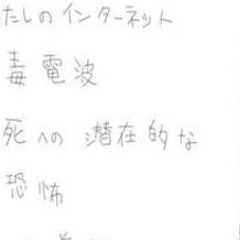 たしのインターネット
毒電波
死への潜在的な
恐怖